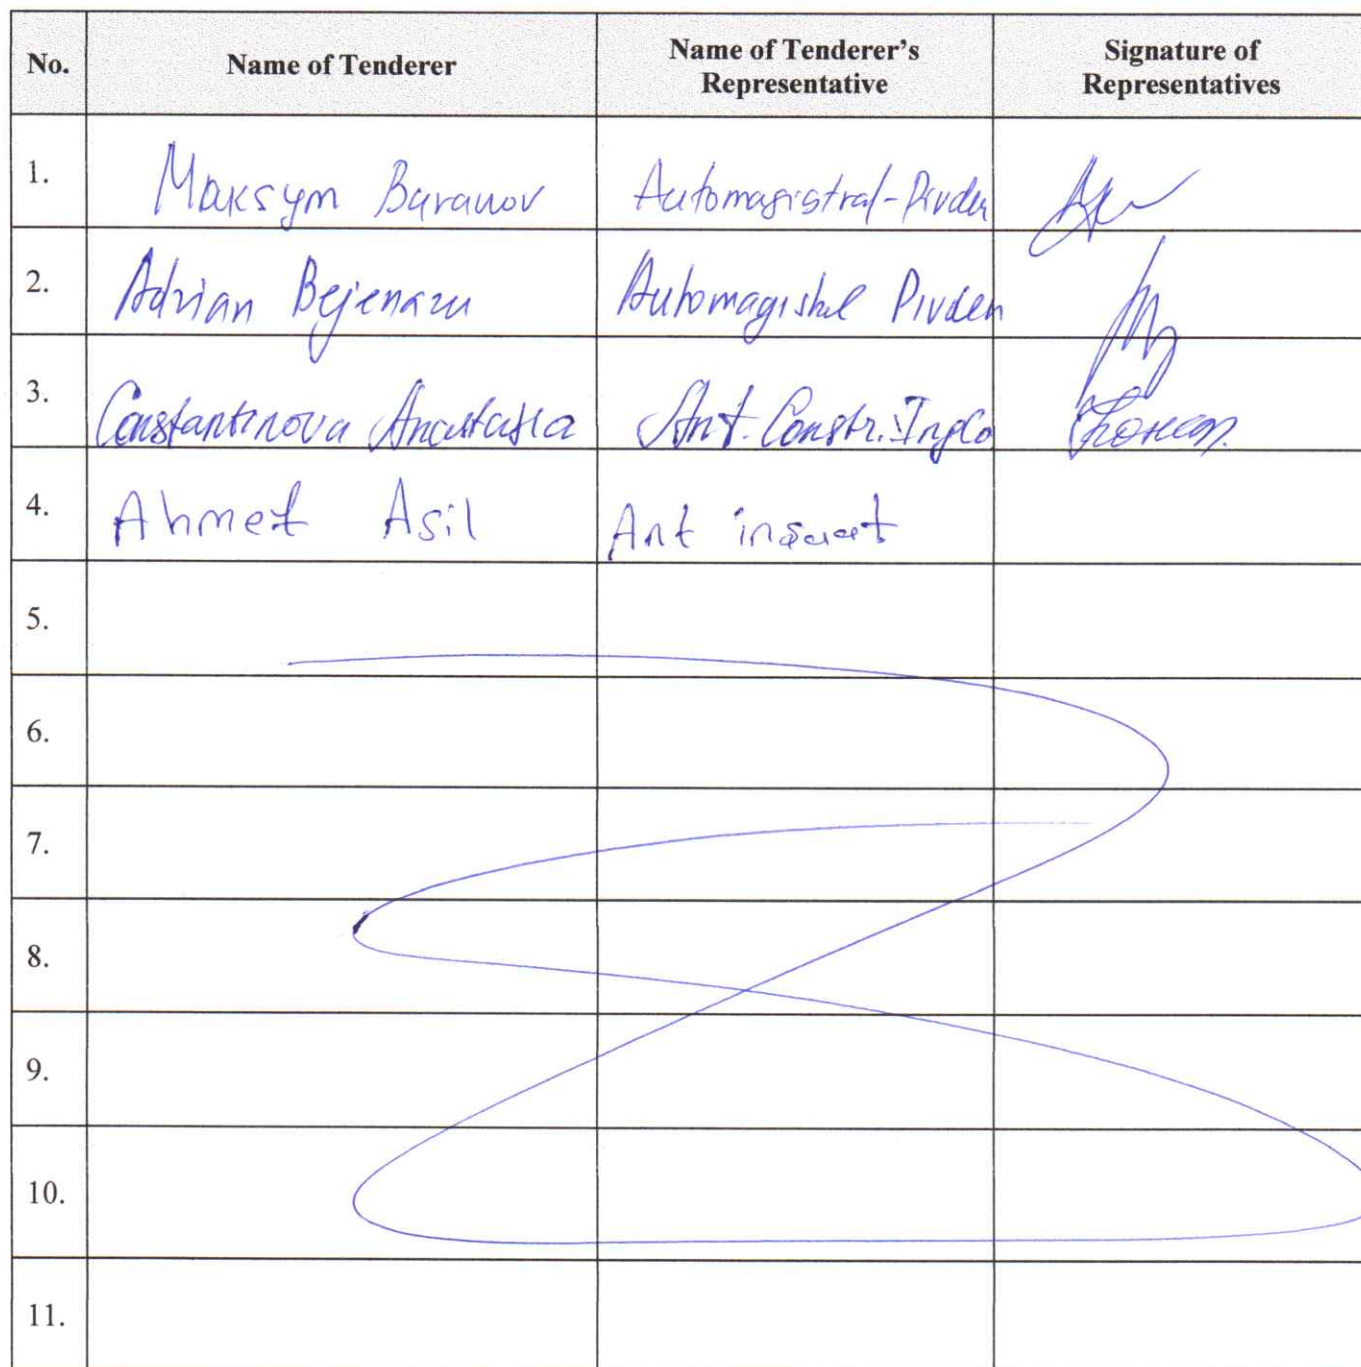 No. Name of Tenderer Name of Tenderer's Representative Signature of Representatives
1. Maksym Baranov Automagistral-Pivden
2. Adrian Bejenaru Automagistral Pivden
3. Constantinova Anastasia Ant. Constr. Ing Co
4. Ahmet Asil Ant inşaat
5.
6.
7.
8.
9.
10.
11.